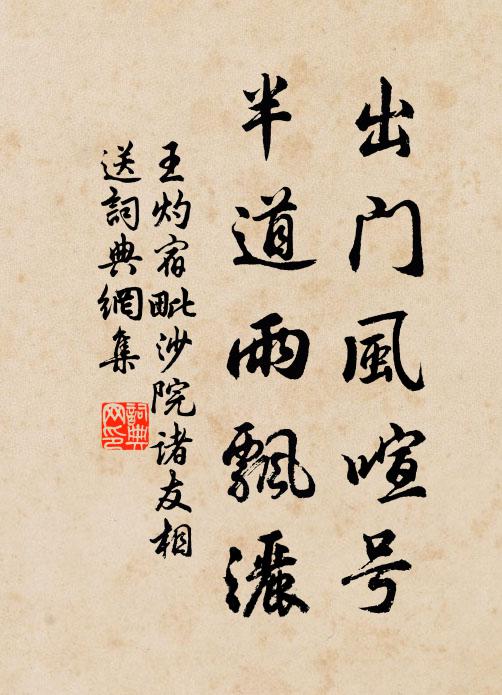 出门風喧号
半道雨飄灑
王灼宿毗沙院诸友相
送詞典網集
詞典
网印